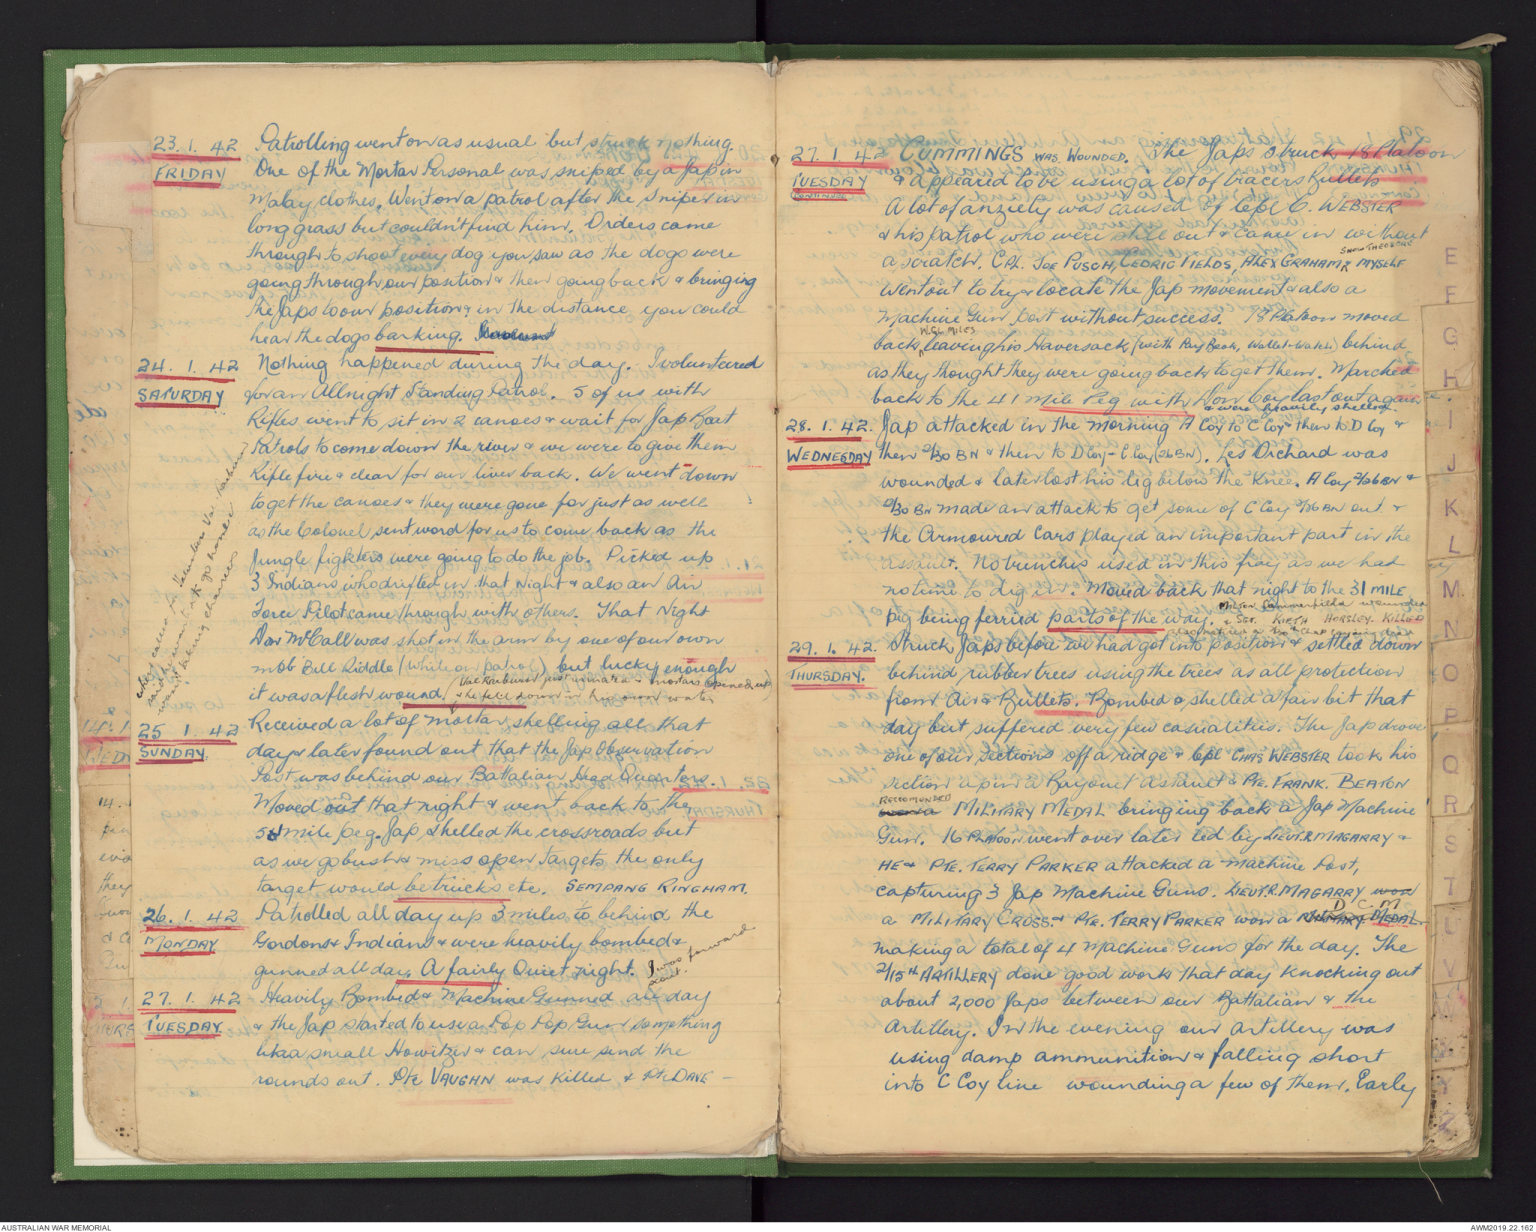 23. 1. 42 Patrolling went on as usual but struck nothing.
FRIDAY One of the Mortar Personal was sniped by a Jap in
Malay clothes. Went on a patrol after the Sniper in
long grass but couldn't find him. Orders came
through to shoot every dog you saw as the dogs were
going through our position & then going back & bringing
the Japs to our position & in the distance you could
hear the dogs barking.
24. 1. 42 Nothing happened during the day. I volunteered
SATURDAY for an Allnight Standing Patrol. 5 of us with
Rifles went to sit in 2 canoes & wait for Jap Boat
Patrols to come down the river & we were to give them
Rifle fire & clear for our liver back. We went down
to get the canoes & they were gone for just as well
as the Colonel sent word for us to come back as the
Jungle fighters were going to do the job. Picked up
3 Indians who drifted in that Night & also an Air
Force Pilot came through with others. That Night
Don McCall was shot in the arm by one of our own
mob Bill Riddle (while on patrol) but lucky enough
it was a flesh wound.
mortars opened up
25 1. 42 Received a lot of mortar shelling all that
SUNDAY day & later found out that the Jap Observation
Post was behind our Battalian Head Quarters.
Moved out that night & went back to the
mile peg. Jap shelled the crossroads but
as we go bush & miss open targets the only
target would be trucks etc. SEMPANG RINGHAM.
26. 1. 42 Patrolled all day up 3 miles to behind the
MONDAY Gordons & Indians & were heavily bombed &
gunned all day. A fairly Quiet night. I was forward
scout.
27. 1. 42 Heavily Bombed & Machine Gunned all day
TUESDAY & the Jap started to use a Pop Pop Gun something
like a small Howitzer & can sure send the
rounds out. Pte VAUGHN was killed & Pte DAVE -
27. 1. 42 CUMMINGS WAS WOUNDED. The Japs struck 18 Platoon
TUESDAY & appeared to be using a lot of tracers Bullets
CONTINUED
A lot of anziety was caused by Cpl C. WEBSTER
& his patrol who were still out & came in without
SNOW THEODORE
a scratch. CPL. JOE PUSCH, CEDRIC FIELDS, ALEX GRAHAM & MYSELF
Went out to try & locate the Jap movement & also a
Machine Gun post without success. 18 Platoon moved
W.G.L MILES
back, leaving his Haversack (with Pay Book, Wallet & Watch) behind
as they thought they were going back to get them. Marched
back to the 41 mile Peg with Don Coy last out again
& were heavily shelled.
28. 1. 42. Jap attacked in the morning A Coy to C Coy then to D Coy &
WEDNESDAY then 2/30 BN & then to D Coy - C Coy (26 BN). Les Orchard was
wounded & later lost his leg below the Knee. A Coy 2/26 BN &
2/30 BN made an attack to get some of C Coy 2/26 BN out &
the Armoured Cars played an important part in the
assault. No trenches used in this fray as we had
no time to dig in. Moved back that night to the 31 MILE
Milton Sommerfield wounded
peg being ferried parts of the way. & SGT. KEITH HORSLEY KILLED
29. 1. 42. Struck Japs before we had got into position & settled down
THURSDAY. behind rubber trees using the trees as all protection
from Air & Bullets. Bombed & shelled a fair bit that
day but suffered very few casualities. The Jap drove
one of our sections off a ridge & Cpl CHAS WEBSTER took his
section up in a Bayonet assault & PTE. FRANK. BEATON
RECCOMENDED
won a MILITARY MEDAL bringing back a Jap Machine
Gun. 16 PLATOON went over later led by LIEUT. R MAGARRY &
HE & PTE. TERRY PARKER attacked a machine Post,
capturing 3 Jap Machine Guns. LIEUT R. MAGARRY won
D C M
a MILITARY CROSS. & PTE. TERRY PARKER won a MILITARY MEDAL
making a total of 4 Machine Guns for the day. The
2/15th ARTILLERY done good work that day knocking out
about 2,000 Japs between our Battalian & the
Artillery. In the evening our artillery was
using damp ammunition & falling short
into C Coy line wounding a few of them. Early
E
F
G
H
I
J
K
L
M
N
O
P
Q
R
S
T
U
V
W
Y
Z
AUSTRALIAN WAR MEMORIAL
AWM2019.22.162